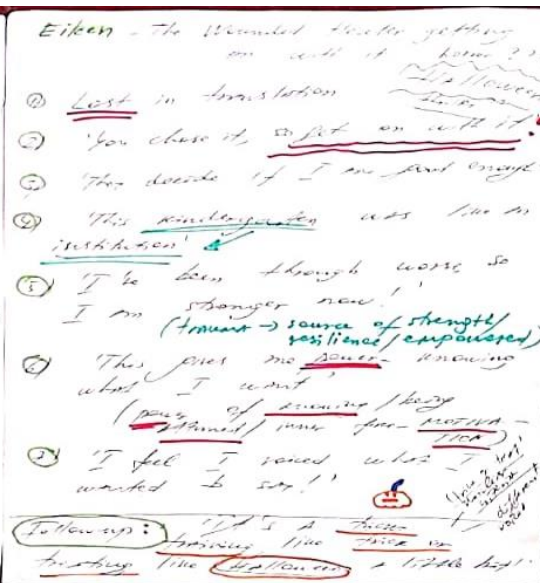 Eiken - The Wounded Healer getting
on with it
Halloween
① Lost in translation
② 'You chose it, so get on with it!
③ 'They decide if I am good enough
④ 'This kindergarten was like an
institution'
⑤ 'I've been through worse so
I am stronger now!'
(trauma → source of strength/
resilience/empowered)
⑥ 'This gives me power - knowing
what I want'
(power of knowing/being
/inner MOTIVA-
TION)
'I feel I voiced what I
wanted to say!'
different
voices
Followup: 'It's a
like trick or
treating like Halloween a little bit!'